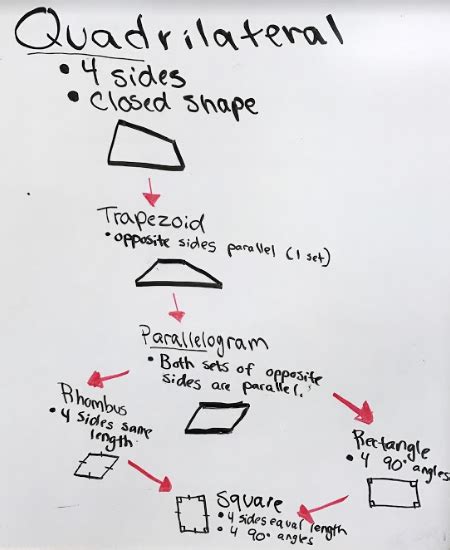 Quadrilateral
• 4 sides
• Closed shape
Trapezoid
• opposite sides parallel (1 set)
Parallelogram
• Both sets of opposite
sides are parallel.
Rhombus
• 4 sides same
length
Rectangle
• 4 90° angles
Square
• 4 sides equal length
• 4 90° angles